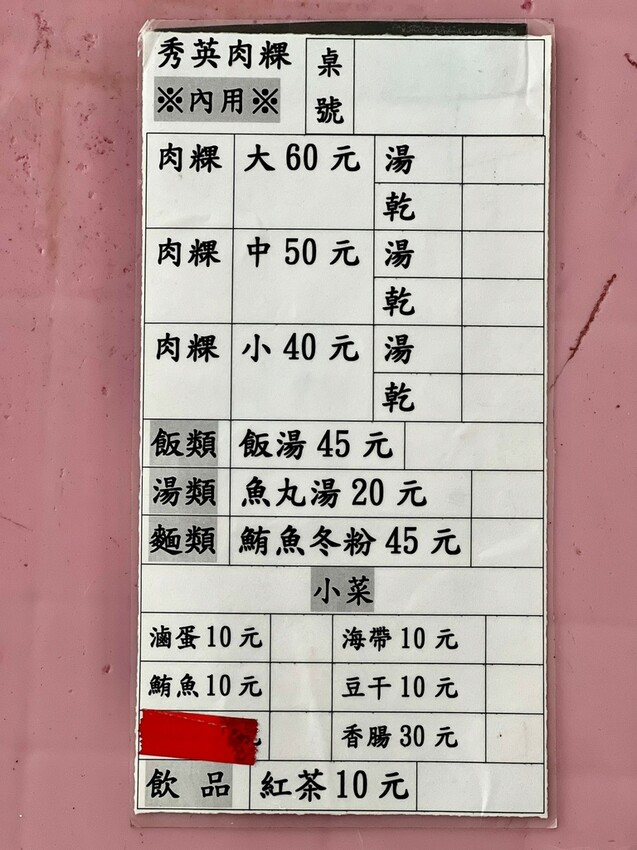 秀英肉粿
※內用※
桌號
肉粿 大60元 湯
乾
肉粿 中50元 湯
乾
肉粿 小40元 湯
乾
飯類 飯湯45元
湯類 魚丸湯20元
麵類 鮪魚冬粉45元
小菜
滷蛋10元 海帶10元
鮪魚10元 豆干10元
香腸30元
飲品 紅茶10元